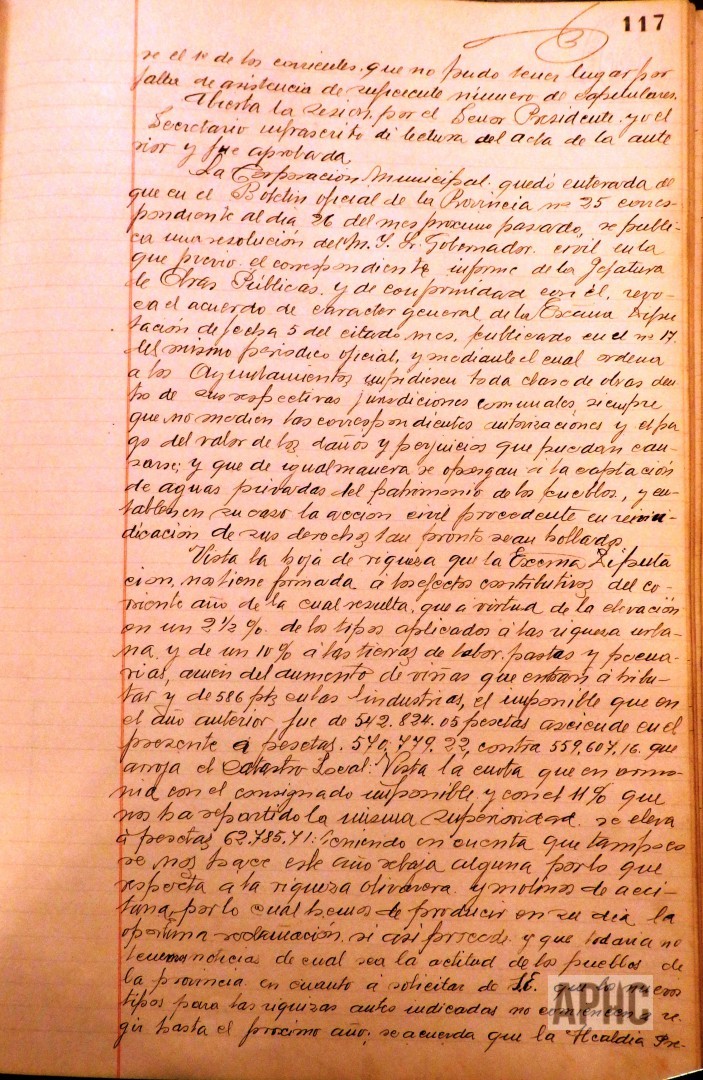 117
se el 1º de los corrientes, que no pudo tener lugar por
falta de asistencia de suficiente número de Capitulares.
Abierta la sesion, por el Señor Presidente, y o el
Secretario infrascrito di lectura del acta de la ante
rior y fue aprobada
La Corporación Municipal quedó enterada de
que en el Boletin oficial de la Provincia nº 25 corres-
pondiente al dia 26 del mes proximo pasado, se publi-
ca una resolución del M. I. Sr. Gobernador civil en la
que previo el correspondiente informe de la Jefatura
de Obras Públicas y de conformidad con él, revo-
ca el acuerdo de caracter general de la Excma Dipu
tación de fecha 5 del citado mes, publicado en el nº 17
del mismo periodico oficial, y mediante el cual ordena
a los Ayuntamientos impidiesen toda clase de obras den
tro de sus respectivas jurisdiciones comunales siempre
que no medien las correspondientes autorizaciones y el pa
go del valor de los daños y perjuicios que puedan cau-
sarse; y que de igual manera se opongan á la captación
de aguas privadas del patrimonio de los pueblos, y en-
tablen en su caso la accion civil procedente en reivin-
dicación de sus derechos tan pronto sean hollados
Vista la hoja de riqueza que la Excma Diputa
cion, nos tiene firmada á los efectos contributivos del co-
rriente año de la cual resulta, que á virtud de la elevación
en un 2 ½ %. de los tipos aplicados á las riqueza urba-
na y de un 10 % á las tierras de labor, pastos y pecua-
rias, amen del aumento de viñas que entran á tribu-
tar y de 586 pts en las industrias, el imponible que en
el año anterior fue de 542.824.05 pesetas asciende en el
presente a pesetas. 570,779,22, contra 559,607,16. que
arroja el Catastro Local: Vista la cuota que en armo-
nia con el consignado imponible y con el 11 % que
nos ha repartido la misma superioridad se eleva
á pesetas 62.785,71: Teniendo en cuenta que tampoco
se nos hace este año rebaja alguna por lo que
respecta a la riqueza olivarera y molinos de acei-
tuna, por lo cual hemos de producir en su dia la
oportuna reclamación, si asi procede y que todavia no
tenemos noticias de cual sea la actitud de los pueblos de
la provincia en cuanto á solicitar de S.E. que los nuevos
tipos para las riquezas antes indicadas no comiencen á re-
gir hasta el proximo año; se acuerda que la Alcaldia Pre-
APHC